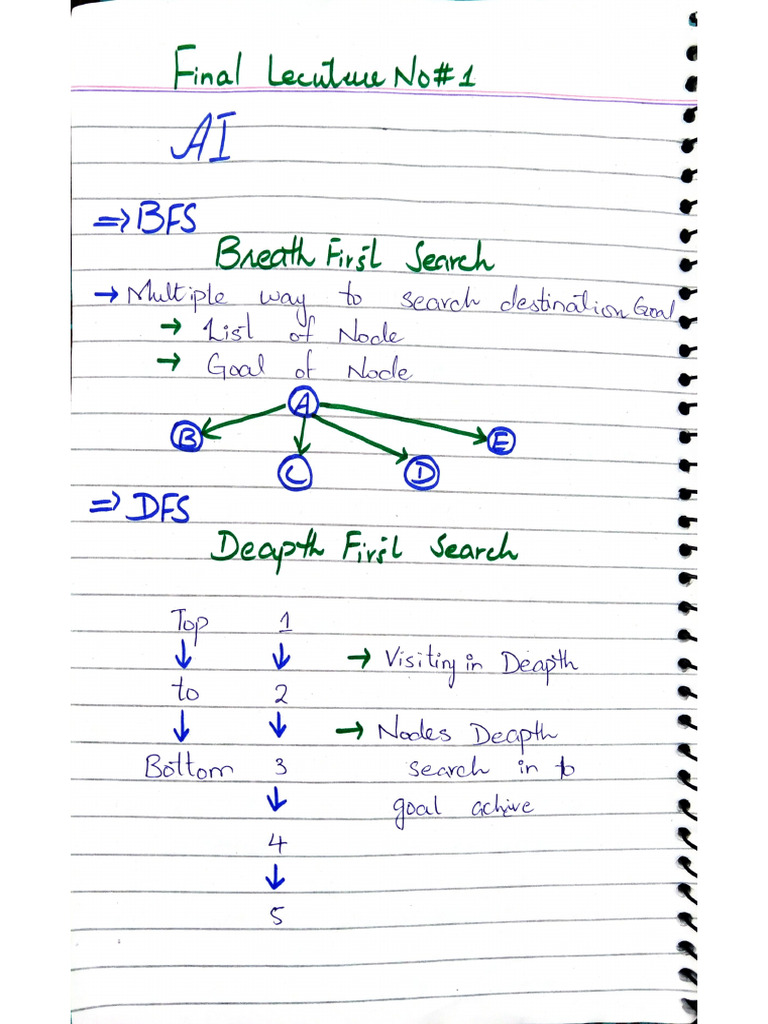 Final Lecuture No#1
AI
=> BFS
Breath First Search
→ Multiple way to search destination Goal
→ List of Node
→ Goal of Node
A
B
E
C
D
=> DFS
Deapth First Search
Top 1
↓ ↓ → Visiting in Deapth
to 2
↓ ↓ → Nodes Deapth
Bottom 3 search in to
↓ goal achive
4
↓
5